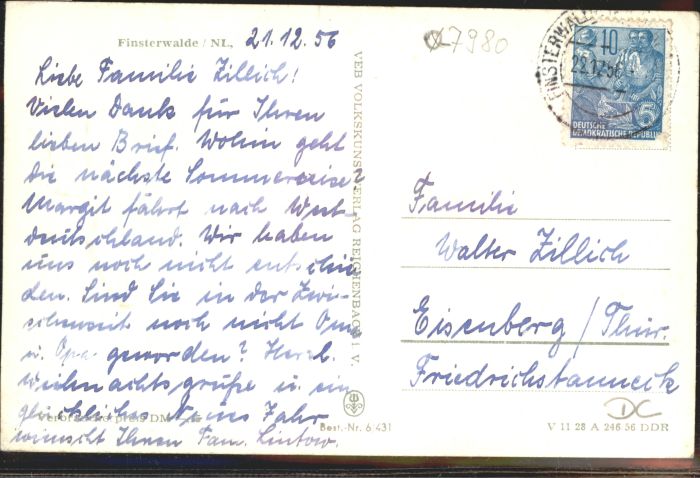 Finsterwalde / NL, 21.12.56
Liebe Familie Zillich!
Vielen Dank für Ihren
lieben Brief. Wohin geht
die nächste Sommerreise?
Margit fährt nach West-
deutschland. Wir haben
uns noch nicht entschie
den. Sind Sie in der Zwi-
schenzeit noch nicht Oma
u. Opa geworden? Herzl.
Weihnachtsgrüße u. ein
glückliches Neues Jahr
wünscht Ihnen Fam. Lintow.
VEB VOLKSKUNSTVERLAG REICHENBACH I. V.
Best.-Nr. 6/431
Ø7980
FINSTERWALDE
22.12.56
10
5
DEUTSCHE
DEMOKRATISCHE REPUBLIK
Familie
Walter Zillich
Eisenberg / Thür.
Friedrichstanneck
DC
V 11 28 A 246 56 DDR